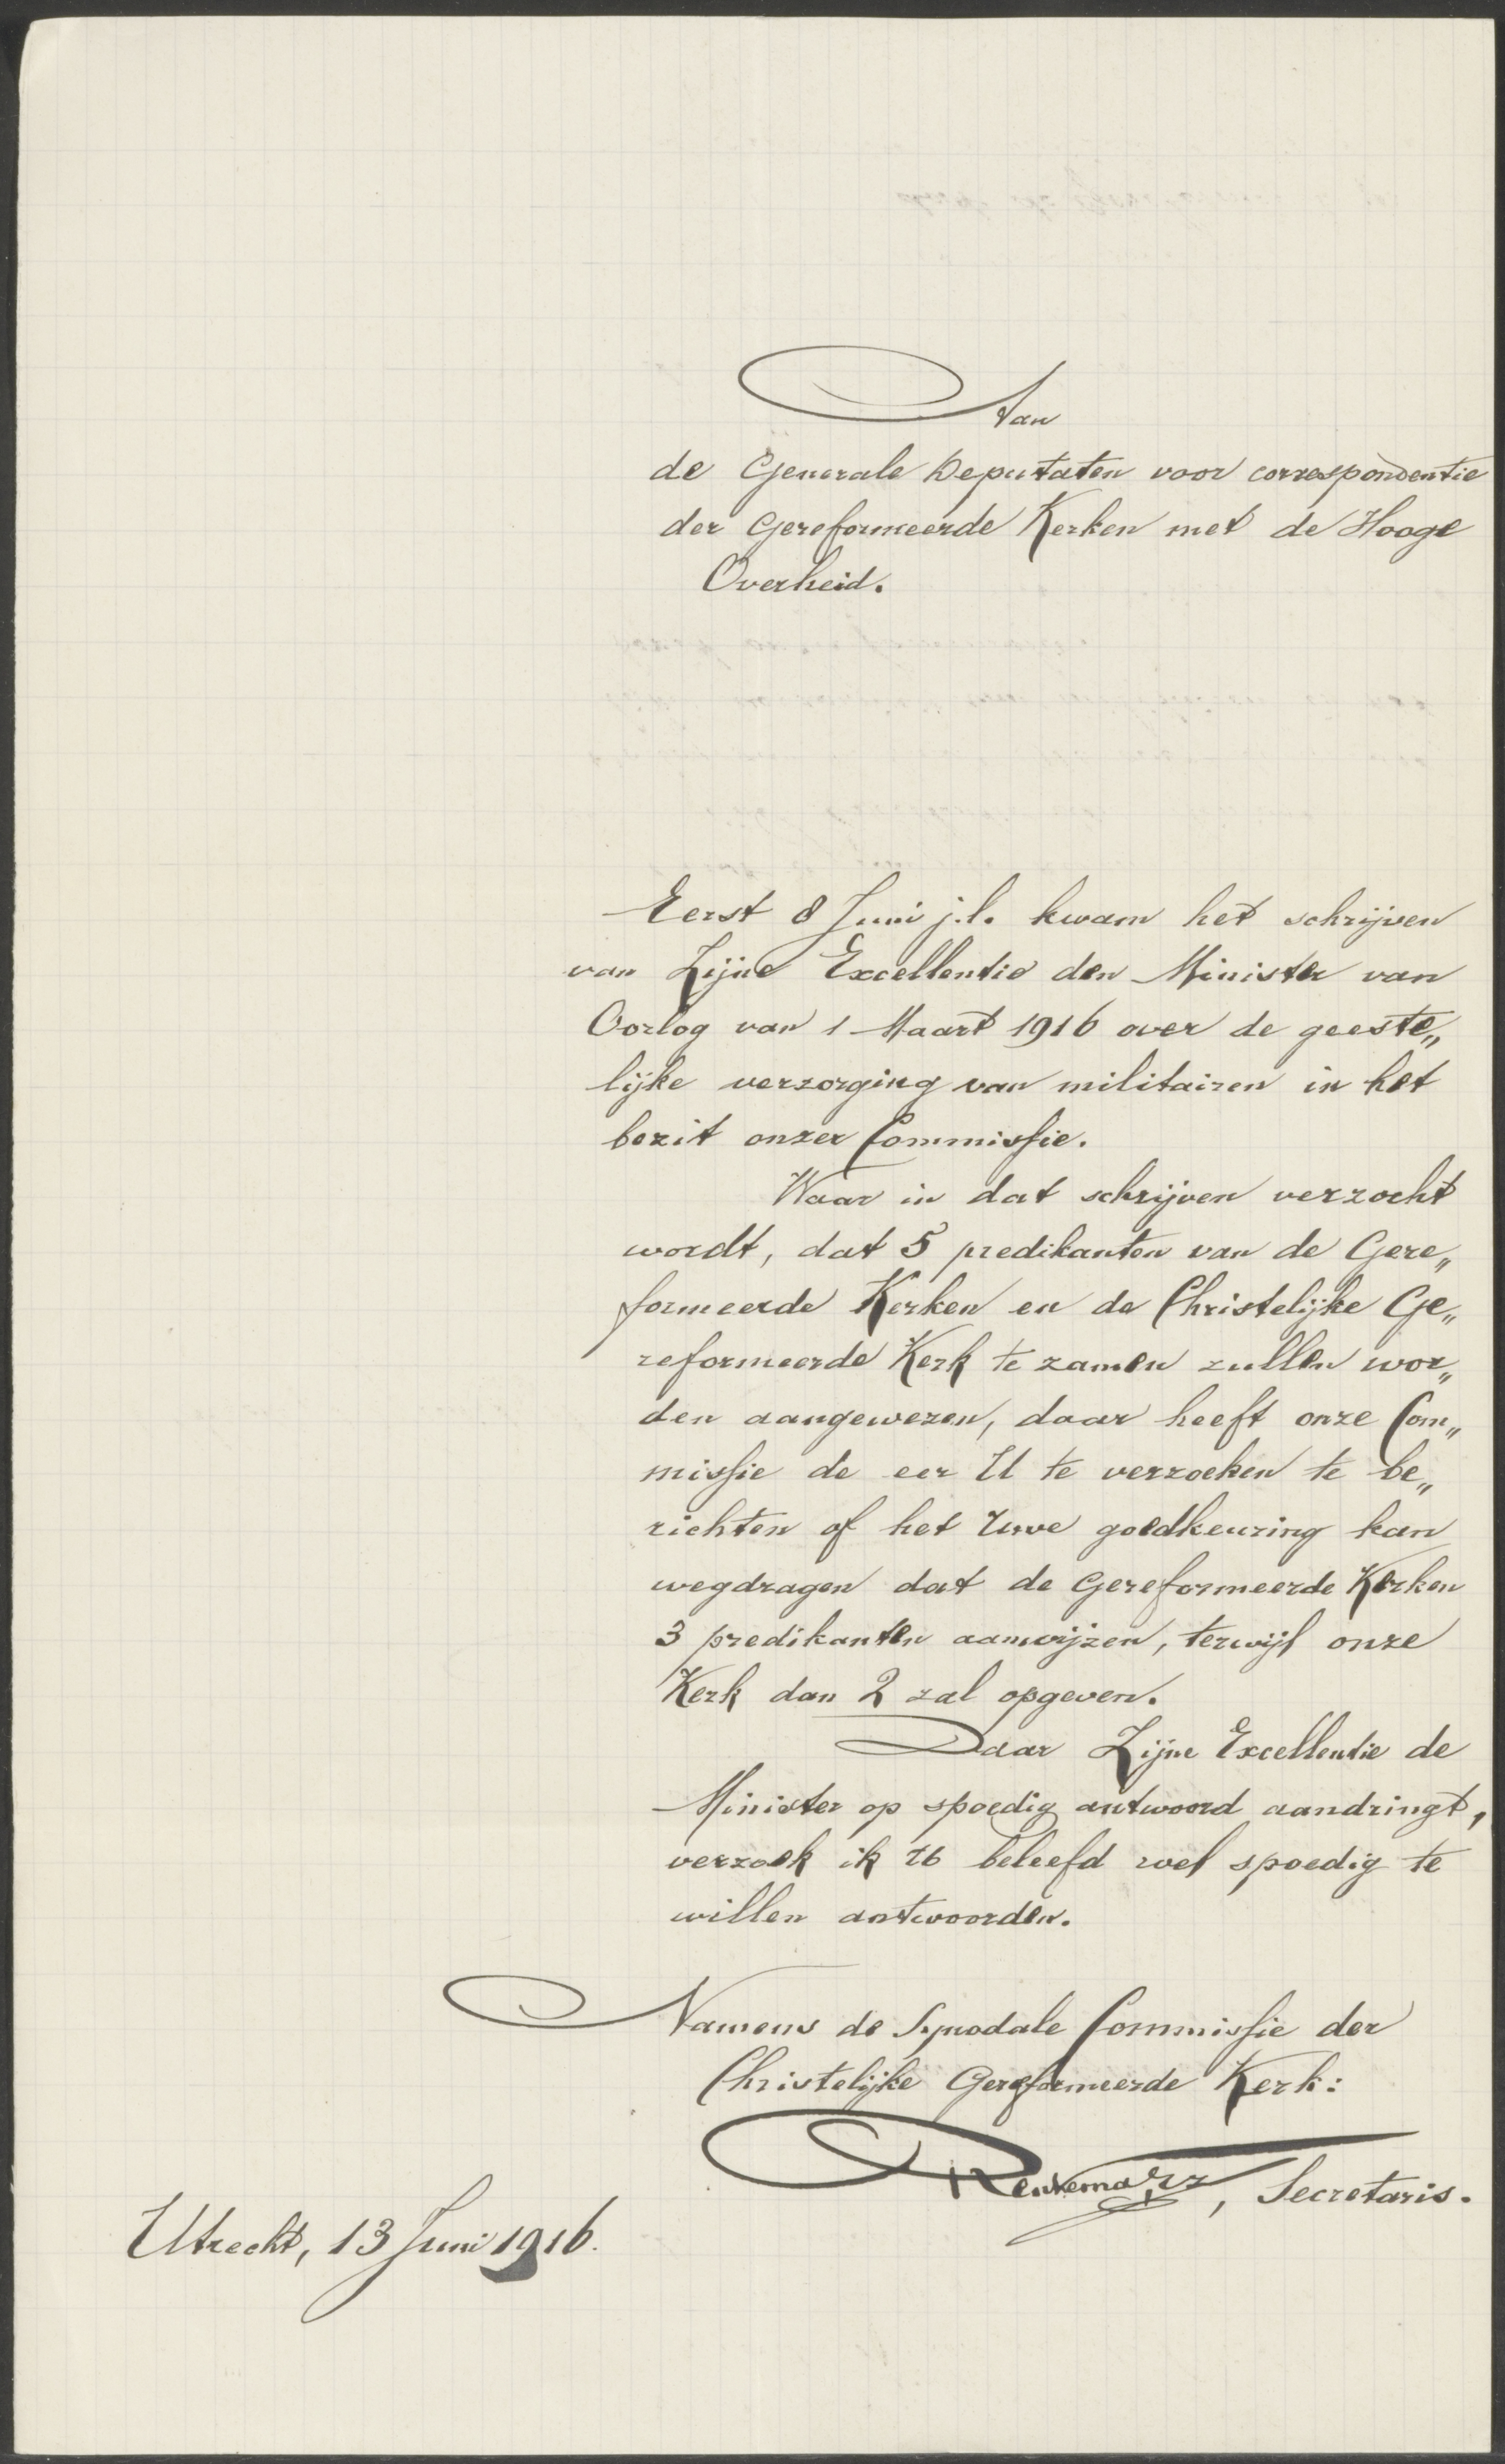 Aan
de Generale Deputaten voor correspondentie
der Gereformeerde Kerken met de Hooge
Overheid.
Eerst 8 Juni j.l. kwam het schrijven
van Zijne Excellentie den Minister van
Oorlog van 1 Maart 1916 over de geeste„
lijke verzorging van militairen in het
bezit onzer Commissie.
Waar in dat schrijven verzocht
wordt, dat 5 predikanten van de Gere„
formeerde Kerken en de Christelijke Ge„
reformeerde Kerk te zamen zullen wor„
den aangewezen, daar heeft onze Com„
missie de eer U te verzoeken te be„
richten of het Uwe goedkeuring kan
wegdragen dat de Gereformeerde Kerken
3 predikanten aanwijzen, terwijl onze
Kerk dan 2 zal opgeven.
Daar Zijne Excellentie de
Minister op spoedig antwoord aandringt,
verzoek ik U beleefd wel spoedig te
willen antwoorden.
Namens de Synodale Commissie der
Christelijke Gereformeerde Kerk:
, Secretaris.
Utrecht, 13 Juni 1916.